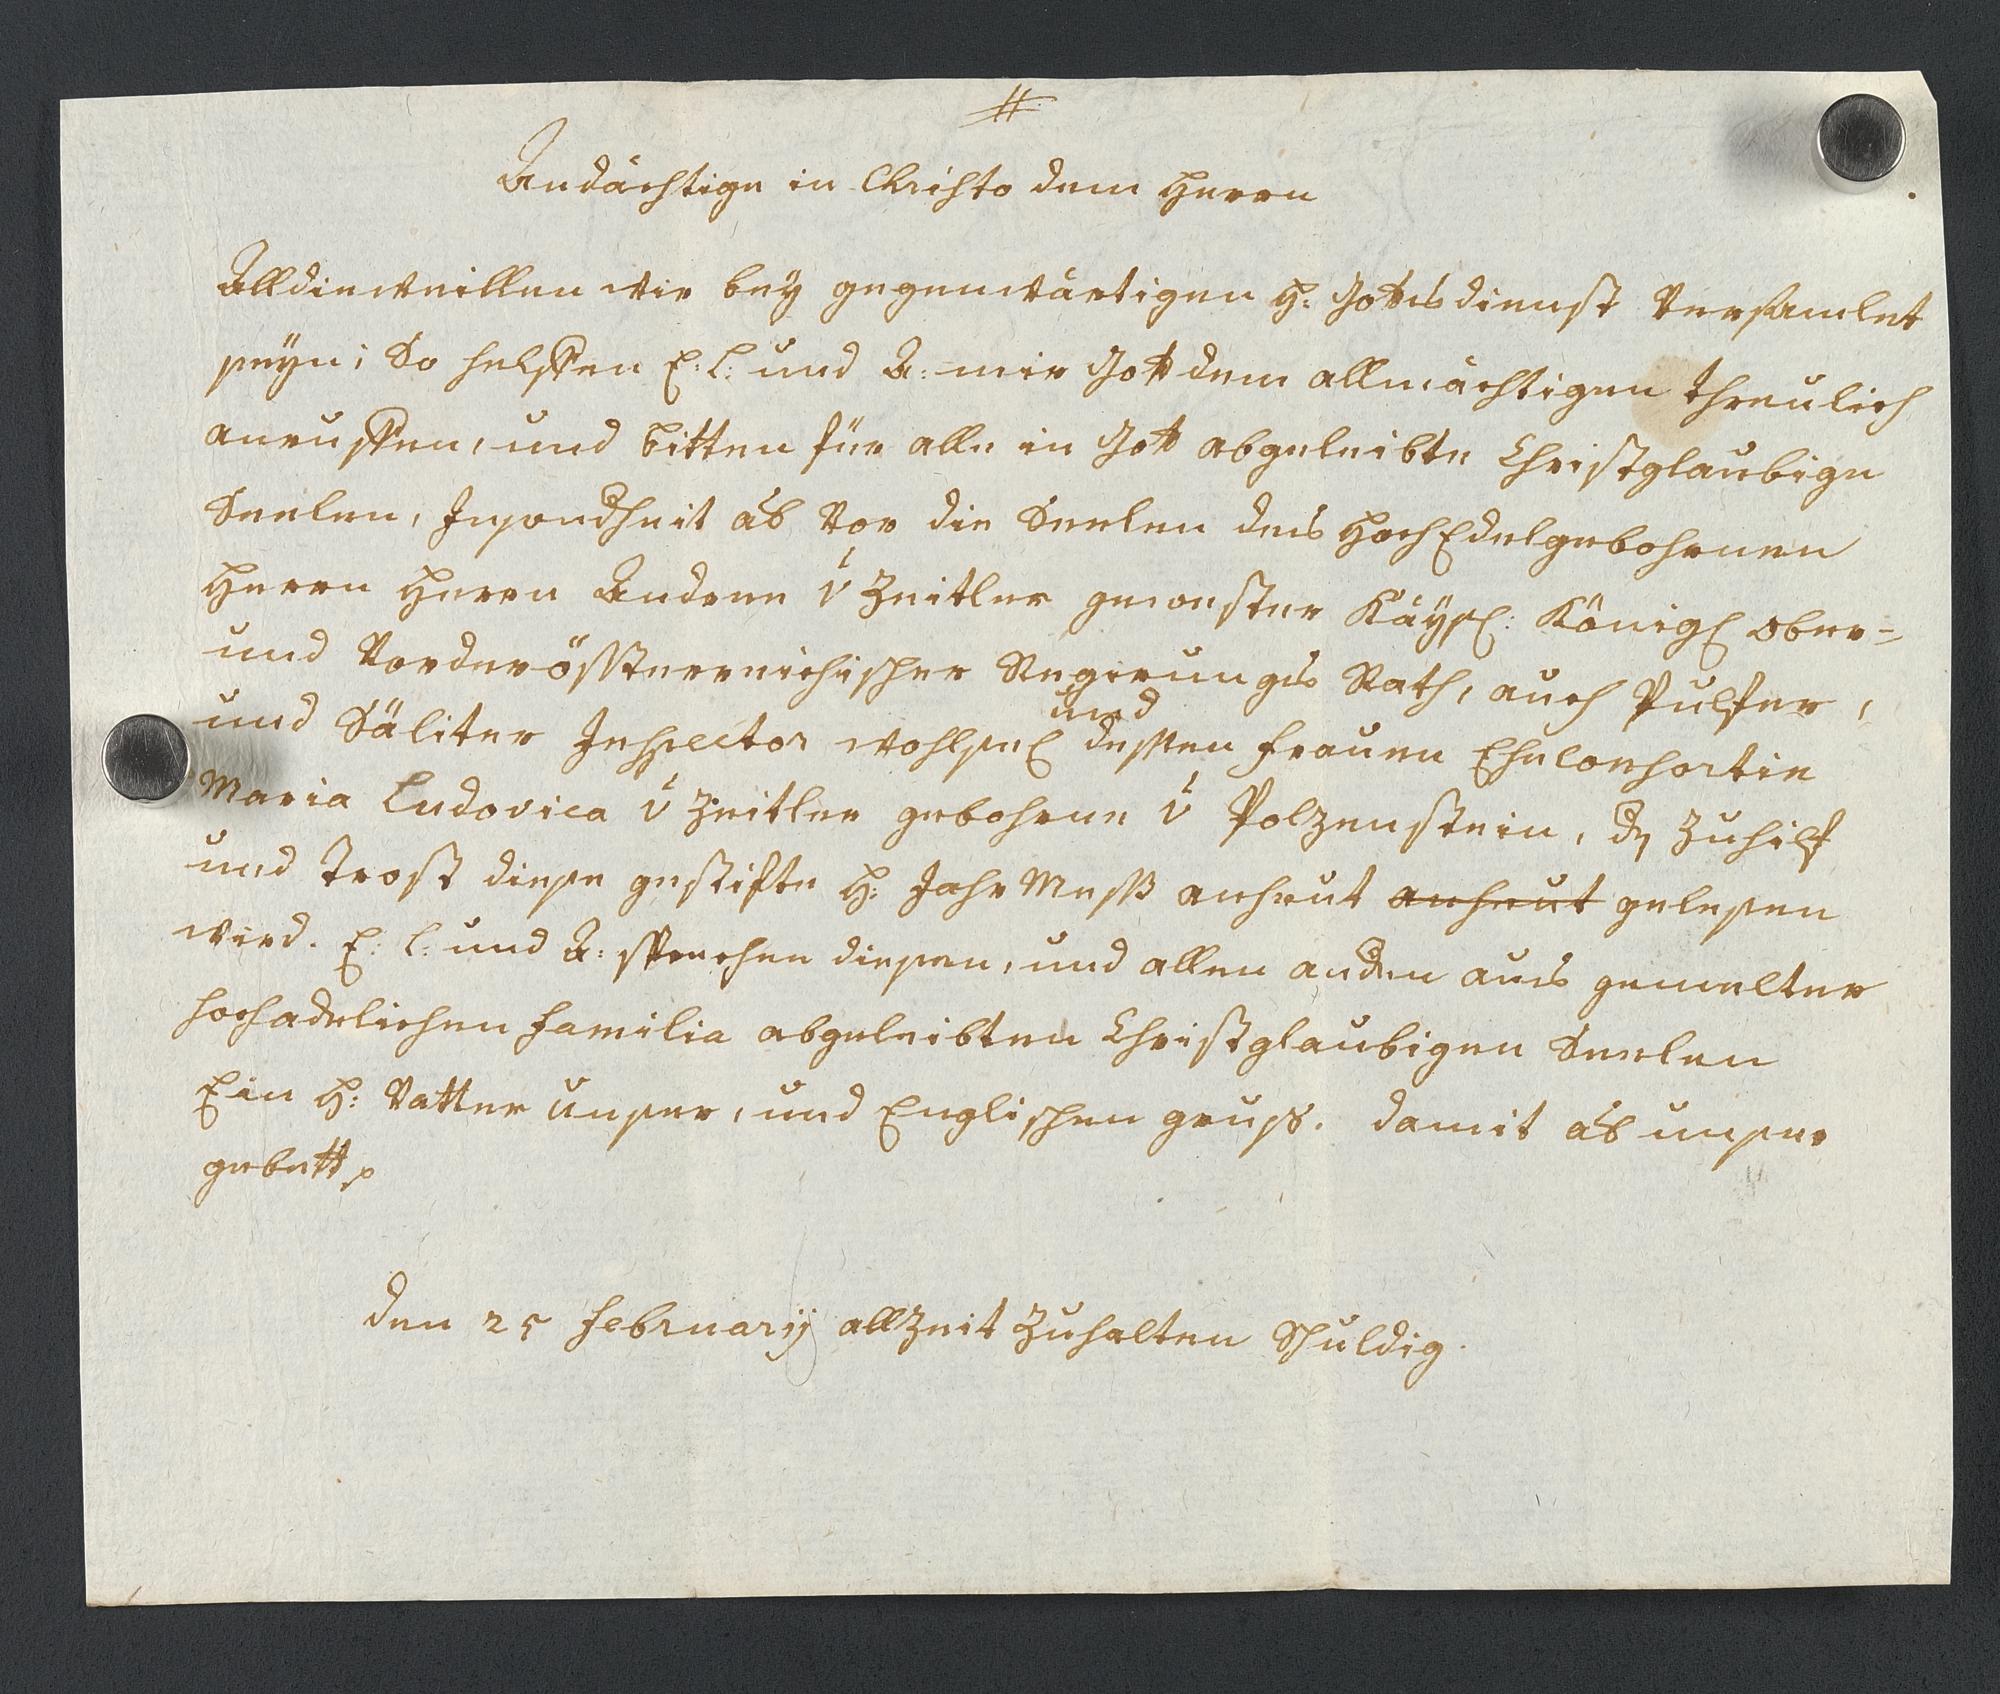 Andächtige in Christo dem Herrn
Alldieweillen wir bey gegenwärtigen H: Gottsdienst Versamlet
seyn; So helffen E: L: und A: mir Gott dem allmächtigen threulich
anruffen, und bitten für alle in Gott abgeleibte Christglaubige
Seelen, Insondheit ab Vor die Seelen deis HochEdelgebohrnen
Herrn Herrn Andree v Zeitler gewester Kayßl: Königl ober-
und Vorderössterreichischer Regirungs Rath, auch Pulfer,
und Säliter Inspector wohlseel und dessen frauen Ehelconsortin
Maria Ludovica v Zeitler gebohrne v Polzenstein, dz zu hilf
und Trost diese gestifte H: Jahr Mess anheut anheut gelesen
wird. E: L: und A: sprechen diesen, und allen anden aus gemelter
hochadelichen familia abgeleibten Christglaubigen Seelen
Ein H: Vatter unser, und Englischen gruß. damit ab unser
gebett
den 25 februarij allzeit zuhalten Schuldig.